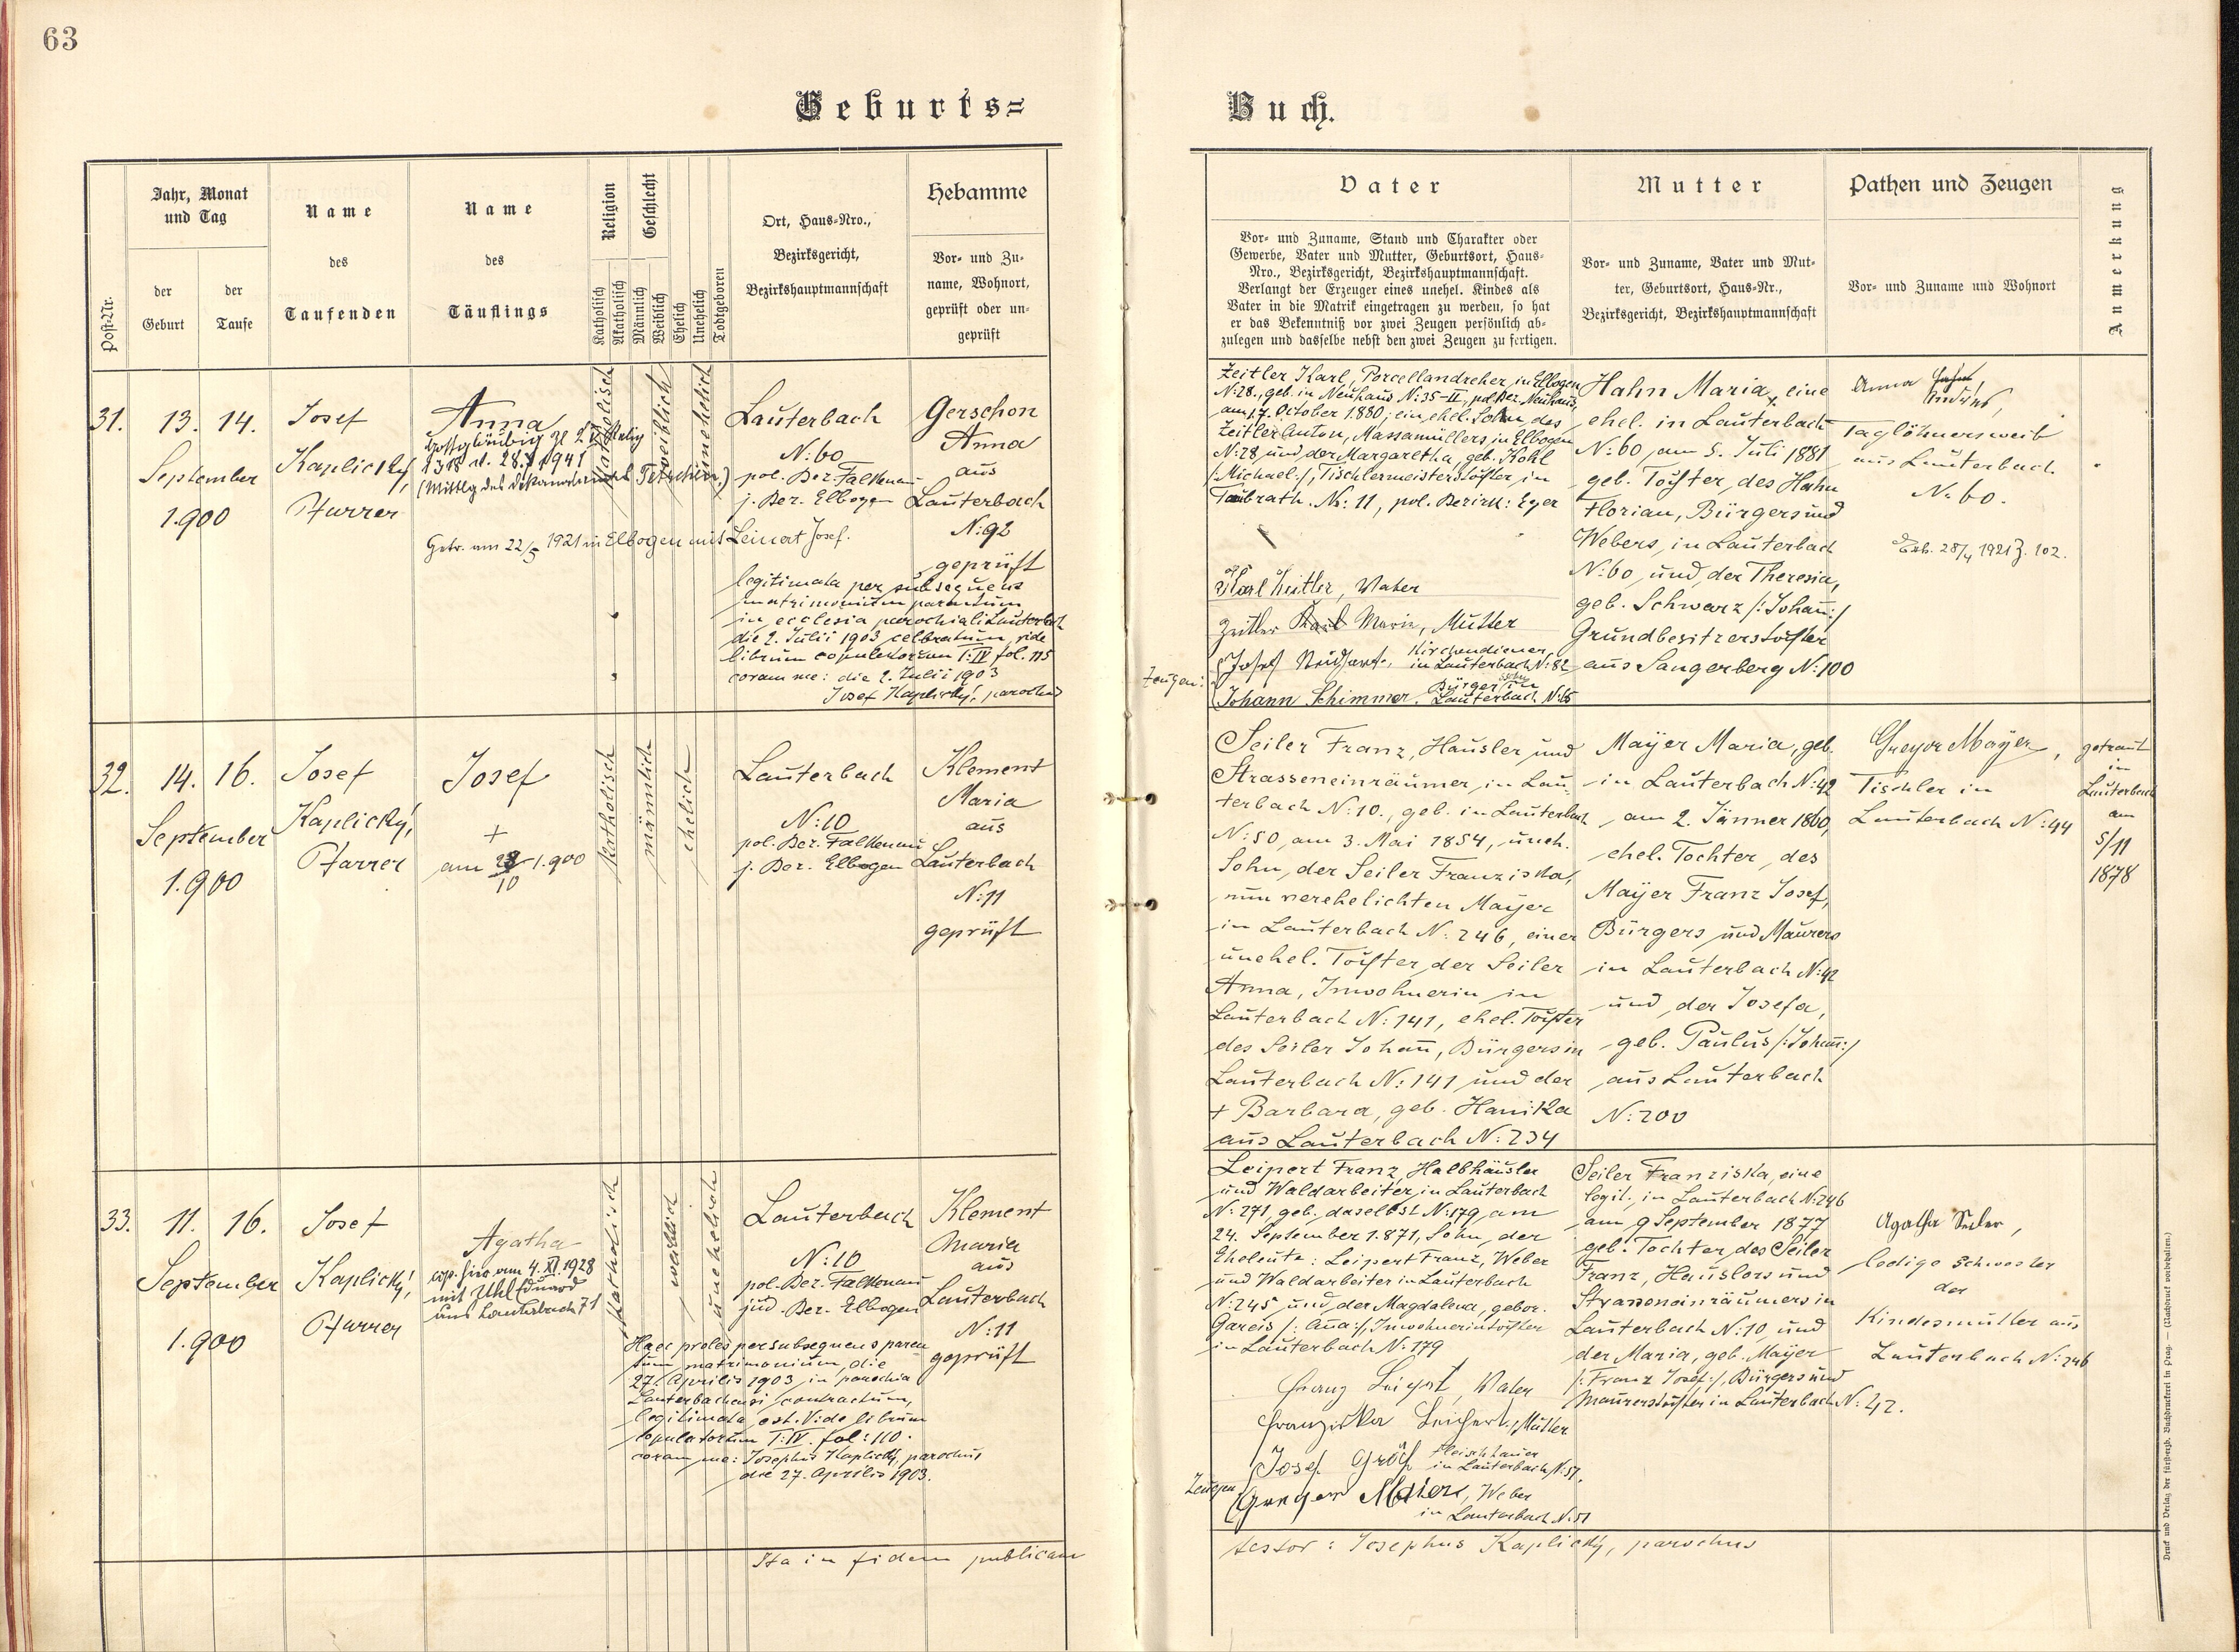 63
Geburts=
Buch.
Post-Nr.
Jahr, Monat
und Tag
der
Geburt
der
Taufe
Name
des
Taufenden
Name
des
Täuflings
Religion
Katholisch
Akatholisch
Geschlecht
Männlich
Weiblich
Ehelich
Unehelich
Todtgeboren
Ort, Haus-Nro.,
Bezirksgericht,
Bezirkshauptmannschaft
Hebamme
Vor- und Zu-
name, Wohnort,
geprüft oder un-
geprüft
Vater
Vor- und Zuname, Stand und Charakter oder
Gewerbe, Vater und Mutter, Geburtsort, Haus-
Nro., Bezirksgericht, Bezirkshauptmannschaft.
Verlangt der Erzeuger eines unehel. Kindes als
Vater in die Matrik eingetragen zu werden, so hat
er das Bekenntniß vor zwei Zeugen persönlich ab-
zulegen und dasselbe nebst den zwei Zeugen zu fertigen.
Mutter
Vor- und Zuname, Vater und Mut-
ter, Geburtsort, Haus-Nr.,
Bezirksgericht, Bezirkshauptmannschaft
Pathen und Zeugen
Vor- und Zuname und Wohnort
Anmerkung
31.
13.
14.
September
1.900
Josef
Kaplický,
Pfarrer
Anna
v. 28. 1941
(Mittlg des Tetschen.)
Getr. am 22/5 1921 in Elbogen mit Leinert Josef.
Katholisch
weiblich
unehelich
Lauterbach
N: 60
pol. Bez. Falkenau
j. Bez. Elbogen
legitimata per subsequens
matrimonium parentum
in ecclesia parochiali Lauterbach
die 2. Julii 1903 celbratum, vide
librum copulatorum T: IV fol. 115
coram me: die 2. Julii 1903
Josef Kaplický, parochus
Gerschon
Anna
aus
Lauterbach
N: 92
geprüft
Zeitler Karl, Porcellandreher, in Elbogen
N: 28., geb. in Neuhaus N: 35-II, pol. Bez. Neuhaus,
am 17. October 1880; ein ehel. Sohn des
Zeitler Anton, Massamüllers in Elbogen
N: 28 und der Margaretha, geb. Kohl
/:Michael:/, Tischlermeisterstochter in
Taubrath. Nr: 11, pol. Bezirk: Eger
Karl Zeitler, Vater
Zeitler Marie, Mutter
Zeugen:
Josef Kirchendiener
in Lauterbach N: 82
Johann Schimmer. Bürger in
Lauterbach N:
Hahn Maria, eine
ehel. in Lauterbach
N: 60, am 5. Juli 1881
geb. Tochter, des Hahn
Florian, Bürgers und
Webers, in Lauterbach
N: 60, und der Theresia,
geb. Schwarz /:Johañ:/
Grundbesitzerstochter
aus Sangerberg N: 100
Anna Hahn,
Taglöhnersweib
aus Lauterbach
N: 60.
28/4 1921 Z. 102.
32.
14.
16.
September
1.900
Josef
Kaplický,
Pfarrer
Josef
+
am 28/10 1.900
Katholisch
männlich
ehelich
Lauterbach
N: 10
pol. Bez. Falkenau
j. Bez. Elbogen
Klement
Maria
aus
Lauterbach
N: 11
geprüft
Seiler Franz, Häusler und
Strasseneinräumer, in Lau-
terbach N: 10., geb. in Lauterbach
N: 50, am 3. Mai 1854, uneh.
Sohn, der Seiler Franziska,
nun verehelichten Mayer
in Lauterbach N: 246, einer
unehel. Tochter, der Seiler
Anna, Inwohnerin in
Lauterbach N: 141, ehel. Tochter
des Seiler Johañ, Bürgers in
Lauterbach N: 141 und der
+ Barbara, geb. Hanika
aus Lauterbach N: 234
Mayer Maria, geb.
in Lauterbach N: 42
am 2. Jänner 1860,
ehel. Tochter, des
Mayer Franz Josef,
Bürgers und Maurers
in Lauterbach N: 42
und der Josefa,
geb. Paulus /:Johañ:/
aus Lauterbach
N: 200
Gregor Mayer,
Tischler in
Lauterbach N: 44
getraut
in
Lauterbach
am
5/11
1878
33.
11.
16.
September
1.900
Josef
Kaplický,
Pfarrer
Agatha
cop. hier am 4. XI. 1928
mit Uhl Eduard
aus Lauterbach 71
Katholisch
weiblich
unehelich
Lauterbach
N: 10
pol. Bez. Falkenau
jud. Bez. Elbogen
Haec proles per subsequens paren-
tum matrimonium, die
27. Aprilis 1903 in parochia
Lauterbachensi contractum,
legitimata est. Vide librum
copulatorum T: IV. fol: 110.
coram me: Josephus Kaplický, parochus,
die 27. Aprilis 1903.
Klement
Maria
aus
Lauterbach
N: 11
geprüft
Leipert Franz, Halbhäusler
und Waldarbeiter, in Lauterbach
N: 271, geb. daselbst N: 179, am
24. September 1.871, Sohn, der
Eheleute: Leipert Franz, Weber
und Waldarbeiter in Lauterbach
N: 245 und der Magdalena, gebor.
Gareis /: Aña:/, Inwohnerinstochter
in Lauterbach N: 179
Franz Leipert, Vater
Franziska Leipert, Mutter
Zeugen
Josef Gröf Fleischhauer
in Lauterbach N: 57.
Gregor Maier, Weber
in Lauterbach N: 51
Seiler Franziska, eine
legit., in Lauterbach N: 246
am 9 September 1877
geb. Tochter des Seiler
Franz, Häuslers und
Strasseneinräumers in
Lauterbach N: 10, und
der Maria, geb. Mayer
/: Franz Josef:/, Bürgers und
Maurerstochter in Lauterbach N: 42.
Agatha Seiler,
ledige Schwester
der
Kindesmutter aus
Lauterbach N: 246
Ita in fidem publicam
testor: Josephus Kaplický, parochus
Druck und Verlag der fürsterzb. Buchdruckerei in Prag. — (Nachdruck vorbehalten.)